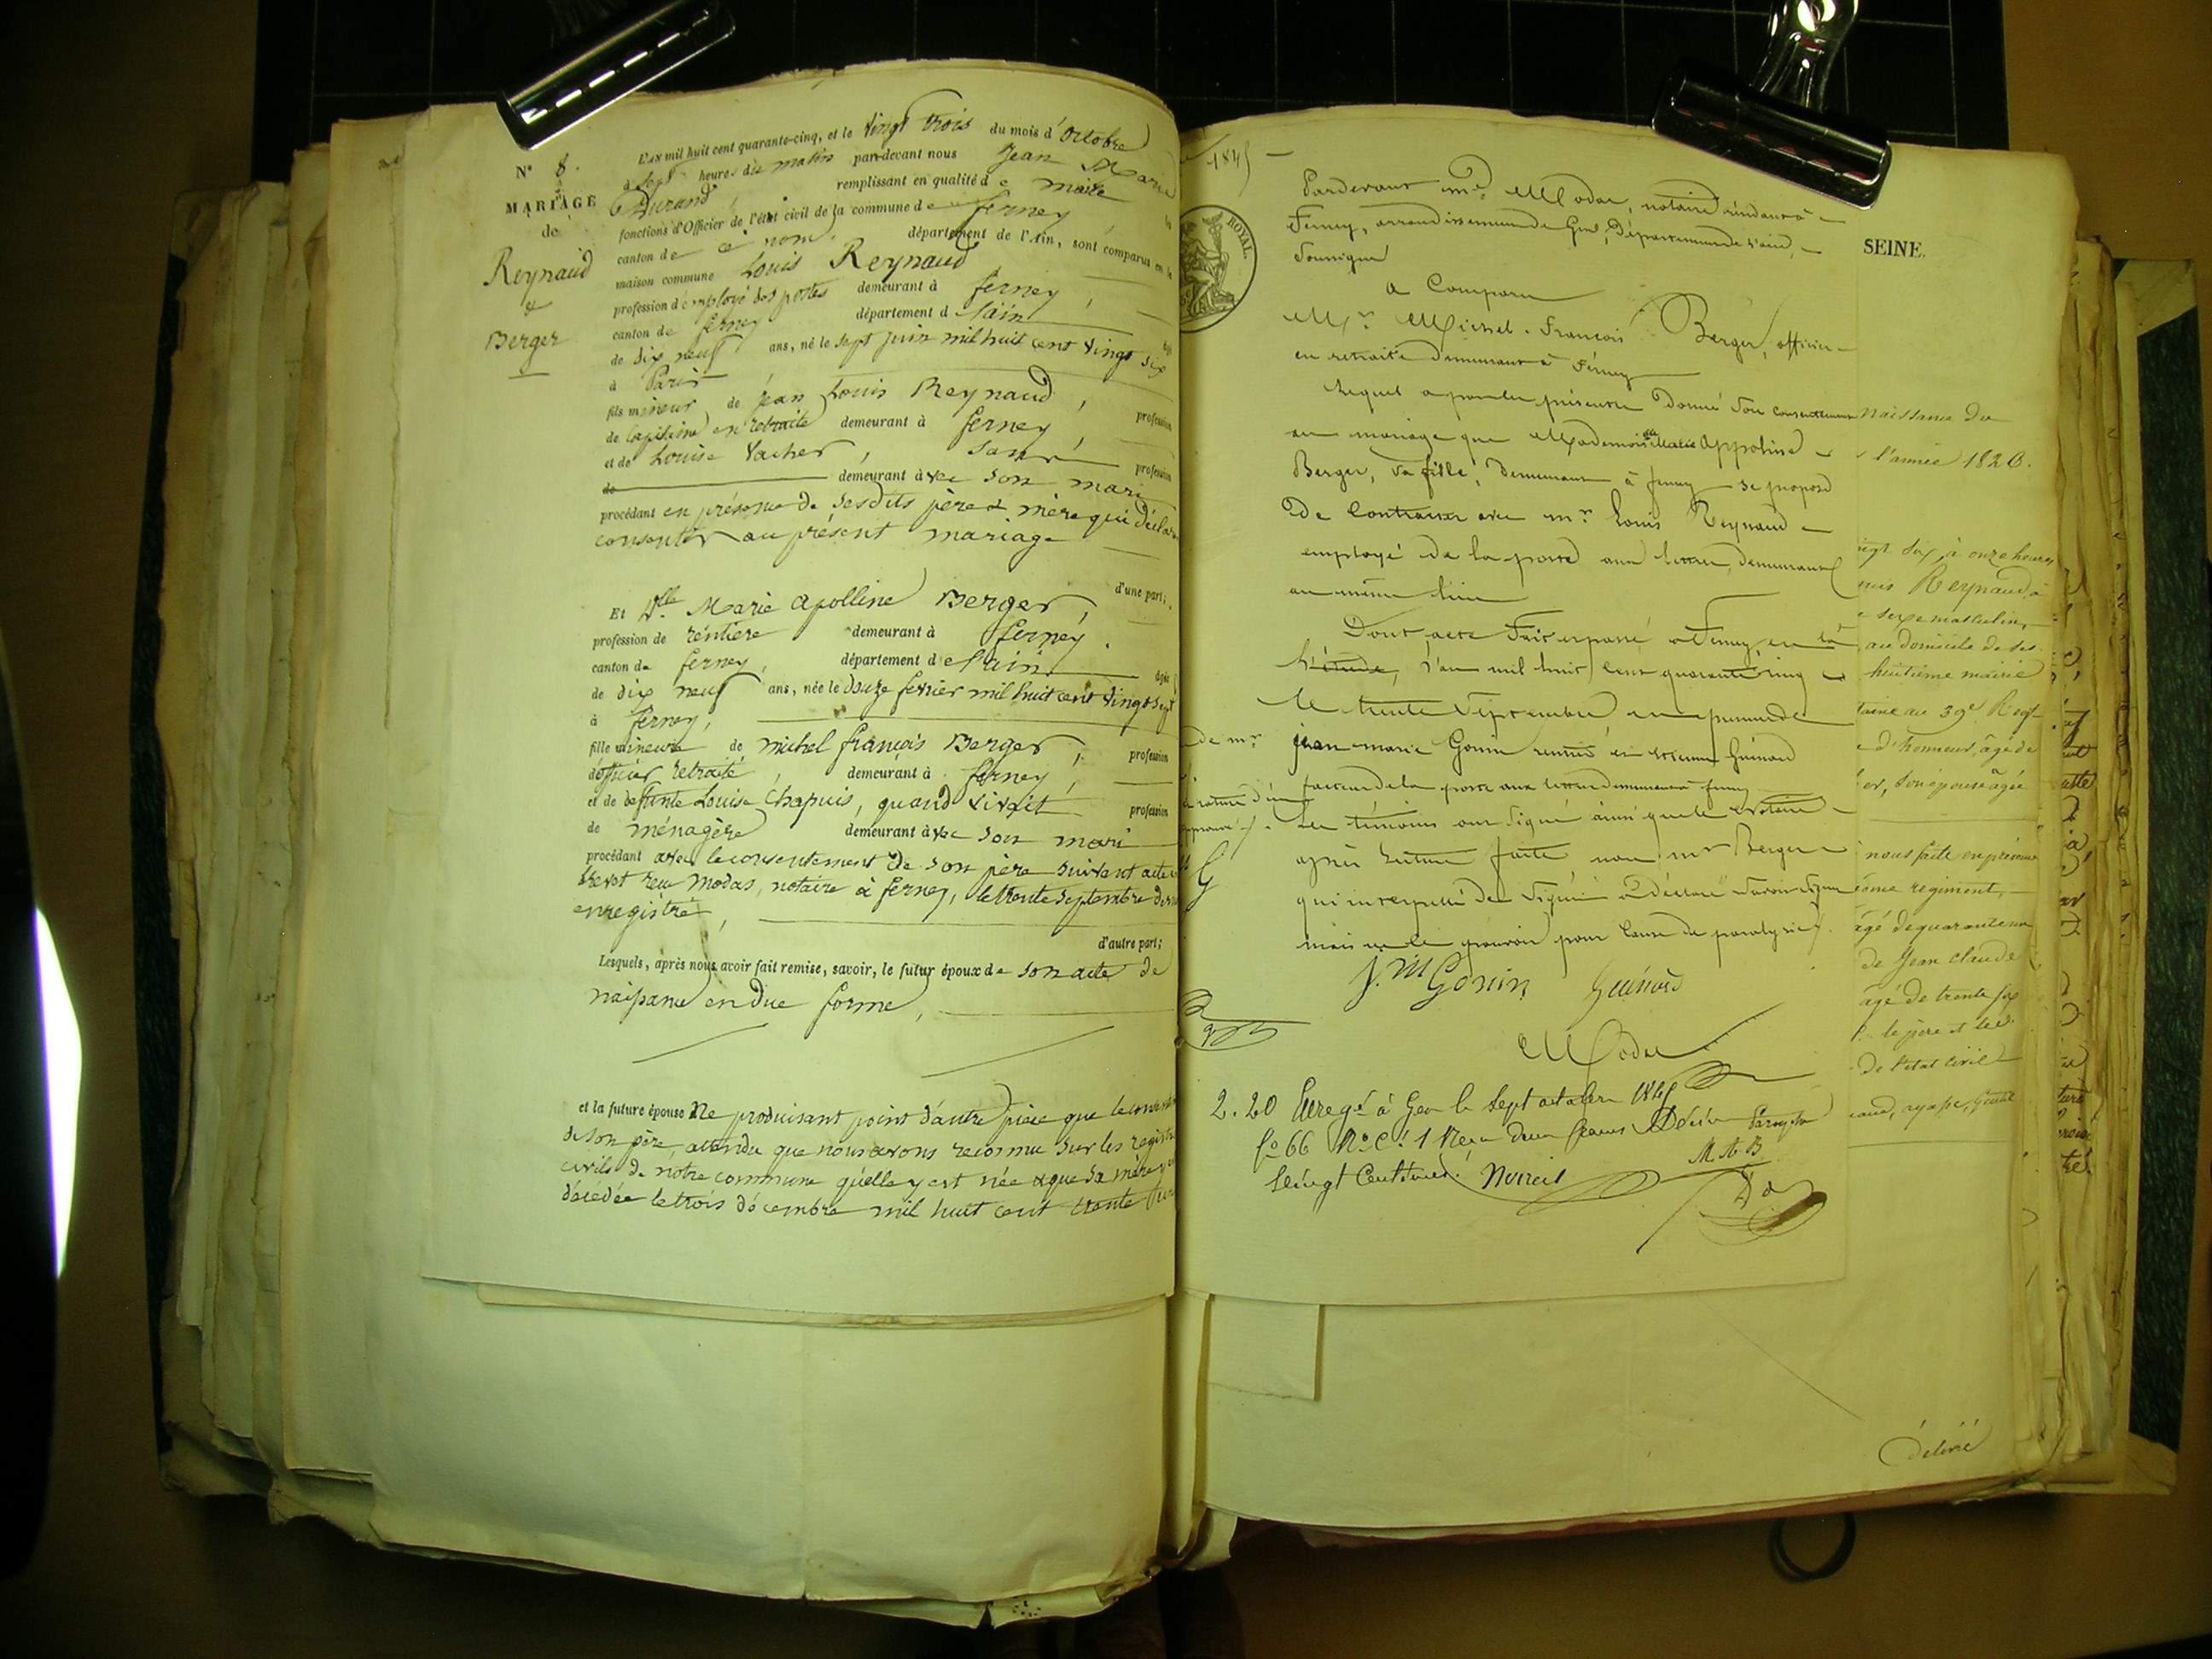 N° 8.
MARIAGE
de
Reynaud
&
Berger
L'AN mil huit cent quarante-cinq, et le vingt trois du mois d'octobre
à sept heures du matin par-devant nous Jean Marie
Durand remplissant en qualité de maire
fonctions d'Officier de l'état civil de la commune de ferney
canton de ce nom, département de l'Ain, sont comparus en la
maison commune Louis Reynaud
profession d'employé des postes demeurant à ferney,
canton de ferney département de l'ain
de dix neuf ans, né le sept juin mil huit cent vingt six
à Paris
fils mineur de jean Louis Reynaud, profession
de capitaine en retraite demeurant à ferney,
et de Louise Vacher, sans profession
de demeurant avec son mari
procédant en présence de sesdits père & mère qui déclare
consentir au présent mariage
d'une part;
Et Dlle Marie apolline Berger,
profession de rentière demeurant à ferney.
canton de ferney, département de l'ain âgée
de dix neuf ans, née le douze fevrier mil huit cent vingt sept
à ferney,
fille mineure de michel françois Berger, profession
d'officier retraité demeurant à ferney,
et de defunte Louise Chapuis, quand vivait profession
de ménagère demeurant avec son mari
procédant avec le consentement de son père suivant acte
brevet reçu modas, notaire à ferney, le trente septembre
enregistré,
d'autre part;
Lesquels, après nous avoir fait remise, savoir, le futur époux de son acte de
naissance en due forme,
et la future épouse ne produisant point d'autre pièce que le
de son père, attendu que nous avons reconnu sur les
civils de notre commune qu'elle y est née & que sa mère y
décédée le trois décembre mil huit cent trente
1845
ROYAL.
Pardevant me Modas, notaire résidant à
Ferney, arrondissement de Gex, Département de l'ain,
soussigné
a Comparu
Mr Michel-François Berger, officier
en retraite demeurant à Ferney
Lequel a par les présentes donné son consentement
au mariage que Mademoiselle Marie Appoline
Berger, sa fille, demeurant à ferney se propose
De contracter avec mr Louis Reynaud
employé de la poste aux lettres, demeurant
au même lieu
Dont acte Fait et passé à Ferney, en la
l'étude, l'an mil huit cent quarante cinq
le trente septembre en présence de
de mr jean marie Gonin et Guinard
facteur de la poste aux lettres demeurant à ferney
Les témoins ont signé ainsi que le notaire
après lecture faite non mr Berger
qui interpellé de signer a déclaré savoir signer
mais ne le pouvoir pour cause de paralysie.
J. M Gonin Guinard
Modas
2.20 Enregé à Gex le sept octobre 1845
fo 66 Ro Ce 1 Reçu deux francs
vingt Centimes. Noireil
SEINE.
Naissance du
l'année 1826.
vingt six, à onze heures
Louis Reynaud
sexe masculin,
au domicile de ses
huitième mairie
au 39e Regt
d'honneur, âgé de
son épouse âgée
nous faite en présence
regiment,
âgé de quarante
de Jean claude
âgé de trente six
le père et les
De l'etat civil
délivré